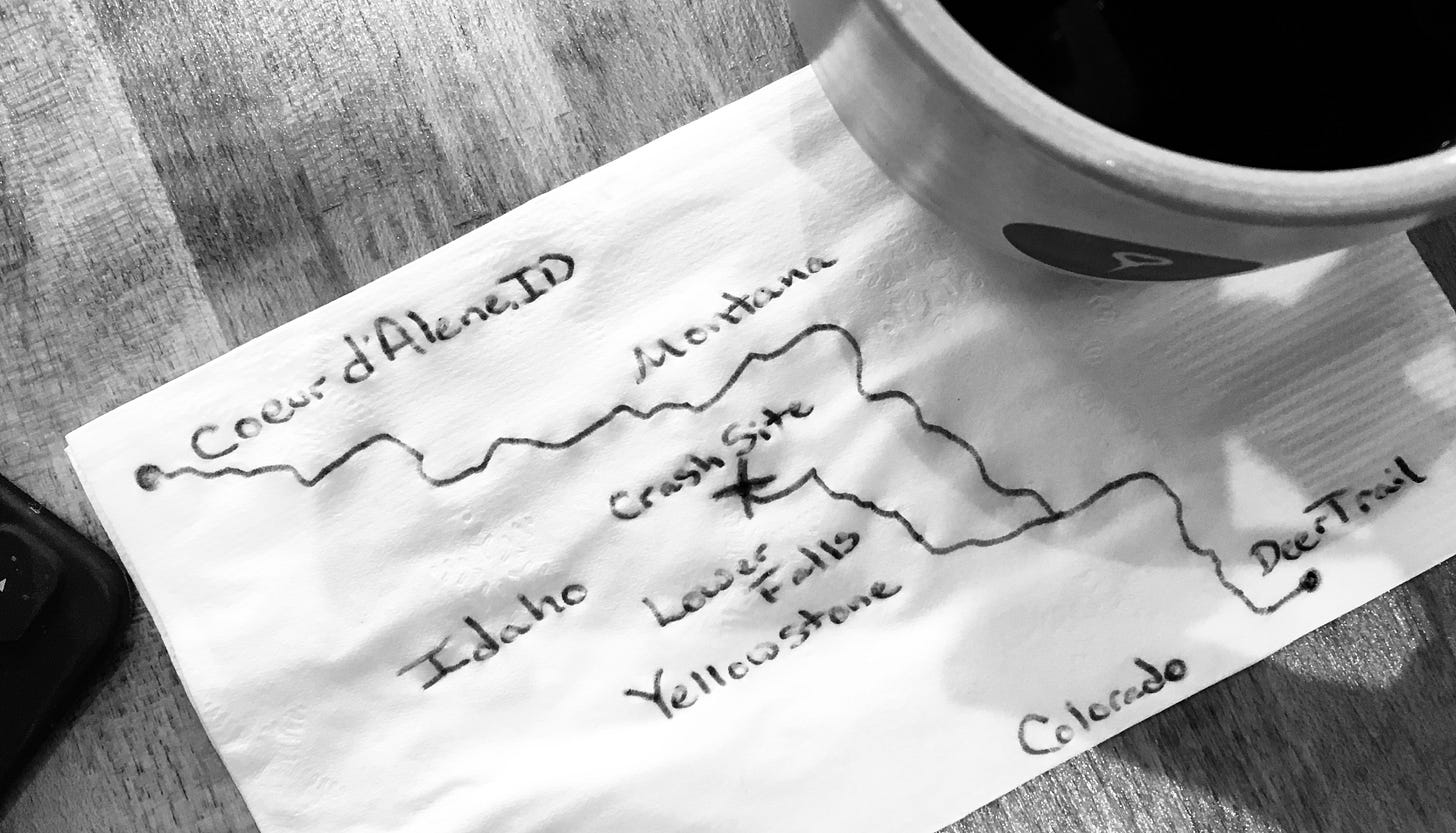 Coeur d'Alene, ID
Montana
Crash Site
Lower
Falls
Yellowstone
Idaho
Deer Trail
Colorado